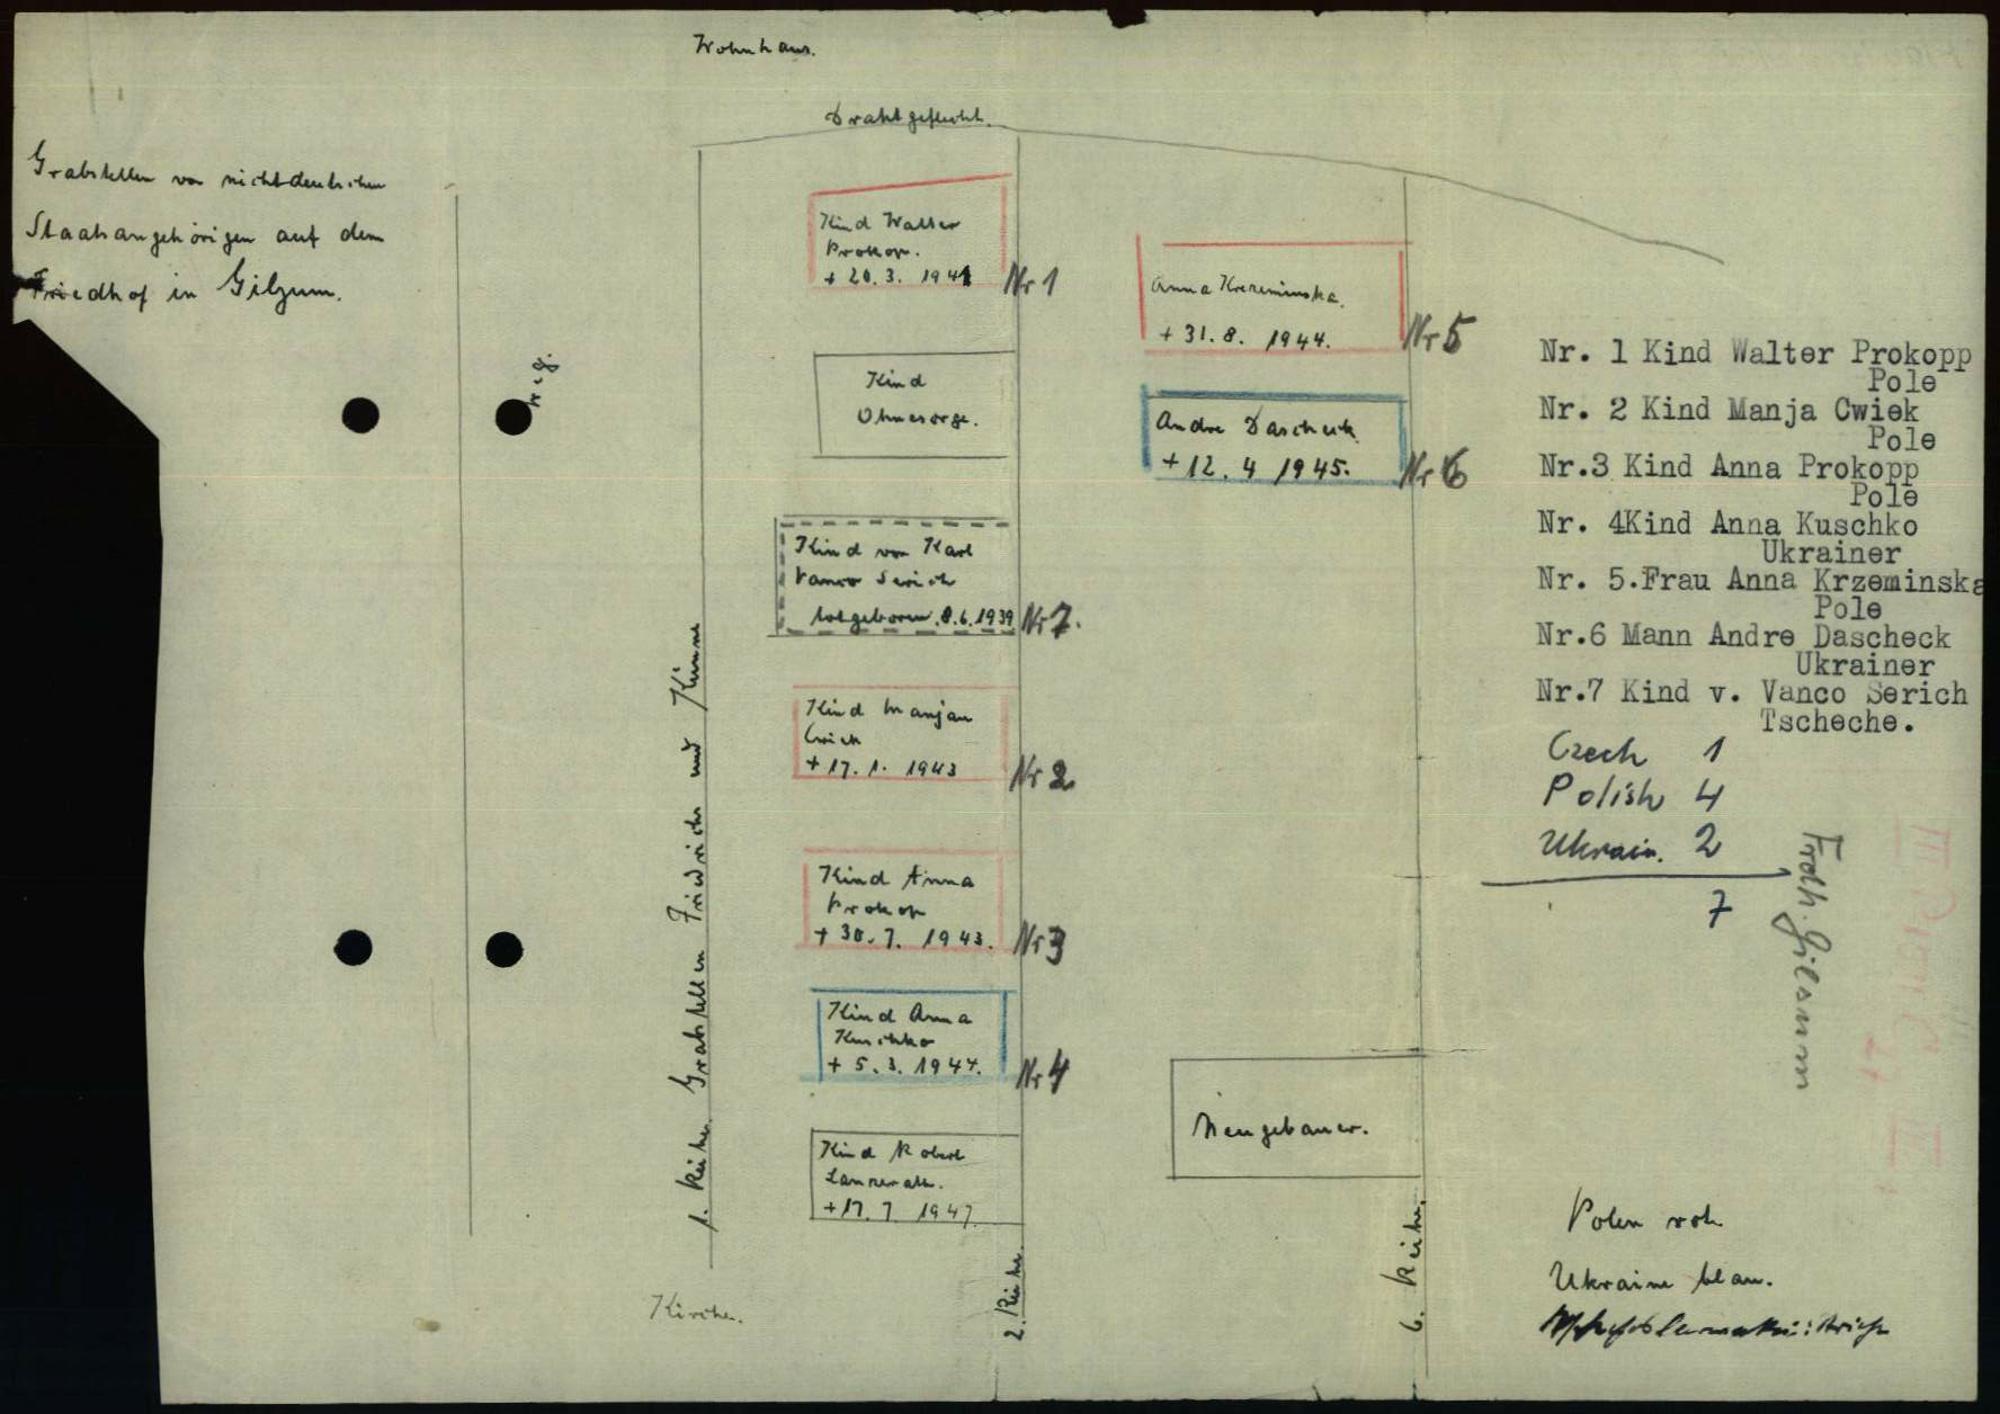 Wohnhaus.
Drahtgeflecht.
Grabstellen von nichtdeutschen
Staatsangehörigen auf dem
Friedhof in Gilzum.
Weg.
1. Reihe. Grabstellen Friedrichs und Kinne
Kind Walter
Prokop.
+ 20.3. 1941
Nr 1
Kind
Ohnesorge.
Kind von Karl
Vanco Serich
totgeboren. 8.6.1939
Nr 7.
Kind Manjan
Cwiek
+ 17. 1. 1943
Nr 2
Kind Anna
Prokop
+ 30.7. 1943.
Nr 3
Kind Anna
Kuschko
+ 5.3. 1944.
Nr 4
Kind Robert
+ 17. 7 1947.
2. Reihe.
Kirche.
Anna Krzeminska.
+ 31. 8. 1944.
Nr 5
Andre Dascheck
+ 12. 4 1945.
Nr 6
Neugebauer.
6. Reihe.
Nr. 1 Kind Walter Prokopp
Pole
Nr. 2 Kind Manja Cwiek
Pole
Nr.3 Kind Anna Prokopp
Pole
Nr. 4Kind Anna Kuschko
Ukrainer
Nr. 5.Frau Anna Krzeminska
Pole
Nr.6 Mann Andre Dascheck
Ukrainer
Nr.7 Kind v. Vanco Serich
Tscheche.
Czech 1
Polish 4
Ukrain. 2
7
Frdh. Gilsum
Polen rot.
Ukraine blau.